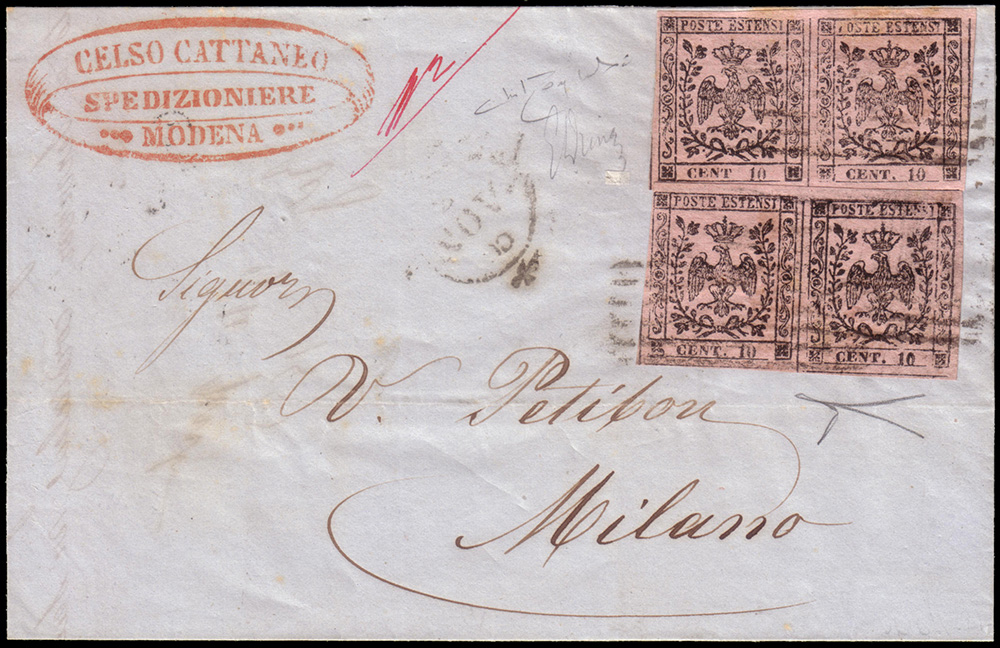 CELSO CATTANEO
SPEDIZIONIERE
MODENA
POSTE ESTENSI
POSTE ESTENSI
CENT. 10
CENT. 10
POSTE ESTENSI
POSTE ESTENSI
CENT. 10
CENT. 10
Signor
V. Petibon
Milano